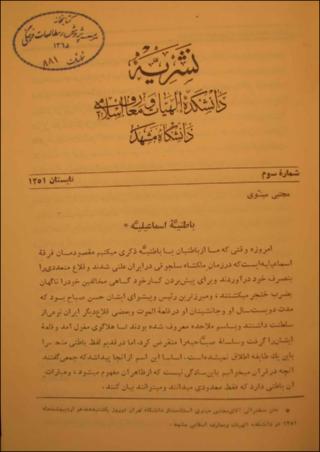 کتابخانه
۱۳۶۵
۸۸۱
نشریهٔ
دانشکدهٔ الهیات و معارف اسلامی
دانشگاه مشهد
شمارهٔ سوم
تابستان ۱۳۵۱
مجتبی مینوی
باطنیهٔ اسماعیلیه *
امروزه وقتی که ما از باطنیان یا باطنیه ذکری میکنیم مقصودمان فرقهٔ
اسماعیلیه است که در زمان ملکشاه سلجوقی در ایران علنی شدند و قلاع متعددی را
بتصرف خود در آوردند و برای پیش بردن کار خود گاهی مخالفین خود را ناگهان
بضرب خنجر میکشتند، و مبرزترین رئیس و پیشوای ایشان حسن صباح بود که
مدت دویست سال او و جانشینان او در قلعهٔ الموت و بعضی قلاع دیگر ایران نوعی از
سلطنت داشتند و باسم ملاحده معروف شده بودند تا هلاگوی مغول آمد و قلعهٔ
ایشان را گرفت و سلسلهٔ صباحیه را منقرض کرد، اما در قدیم لفظ باطنی منحصراً
باین یک طایفه اطلاق نمیشده است. اساساً این اسم از آنجا پیدا شد که جمعی گفتند
آنچه در قرآن میخوانیم باین سادگی نیست که از ظاهر آن مفهوم میشود، و عبارات
آن باطنی دارد که فقط معدودی میدانند و میتوانند بیان کنند.
* متن سخنرانی آقای مجتبی مینوی استاد ممتاز دانشگاه تهران در روز یکشنبه دهم اردیبهشت ماه
۱۳۵۱ در دانشکده الهیات و معارف اسلامی مشهد.